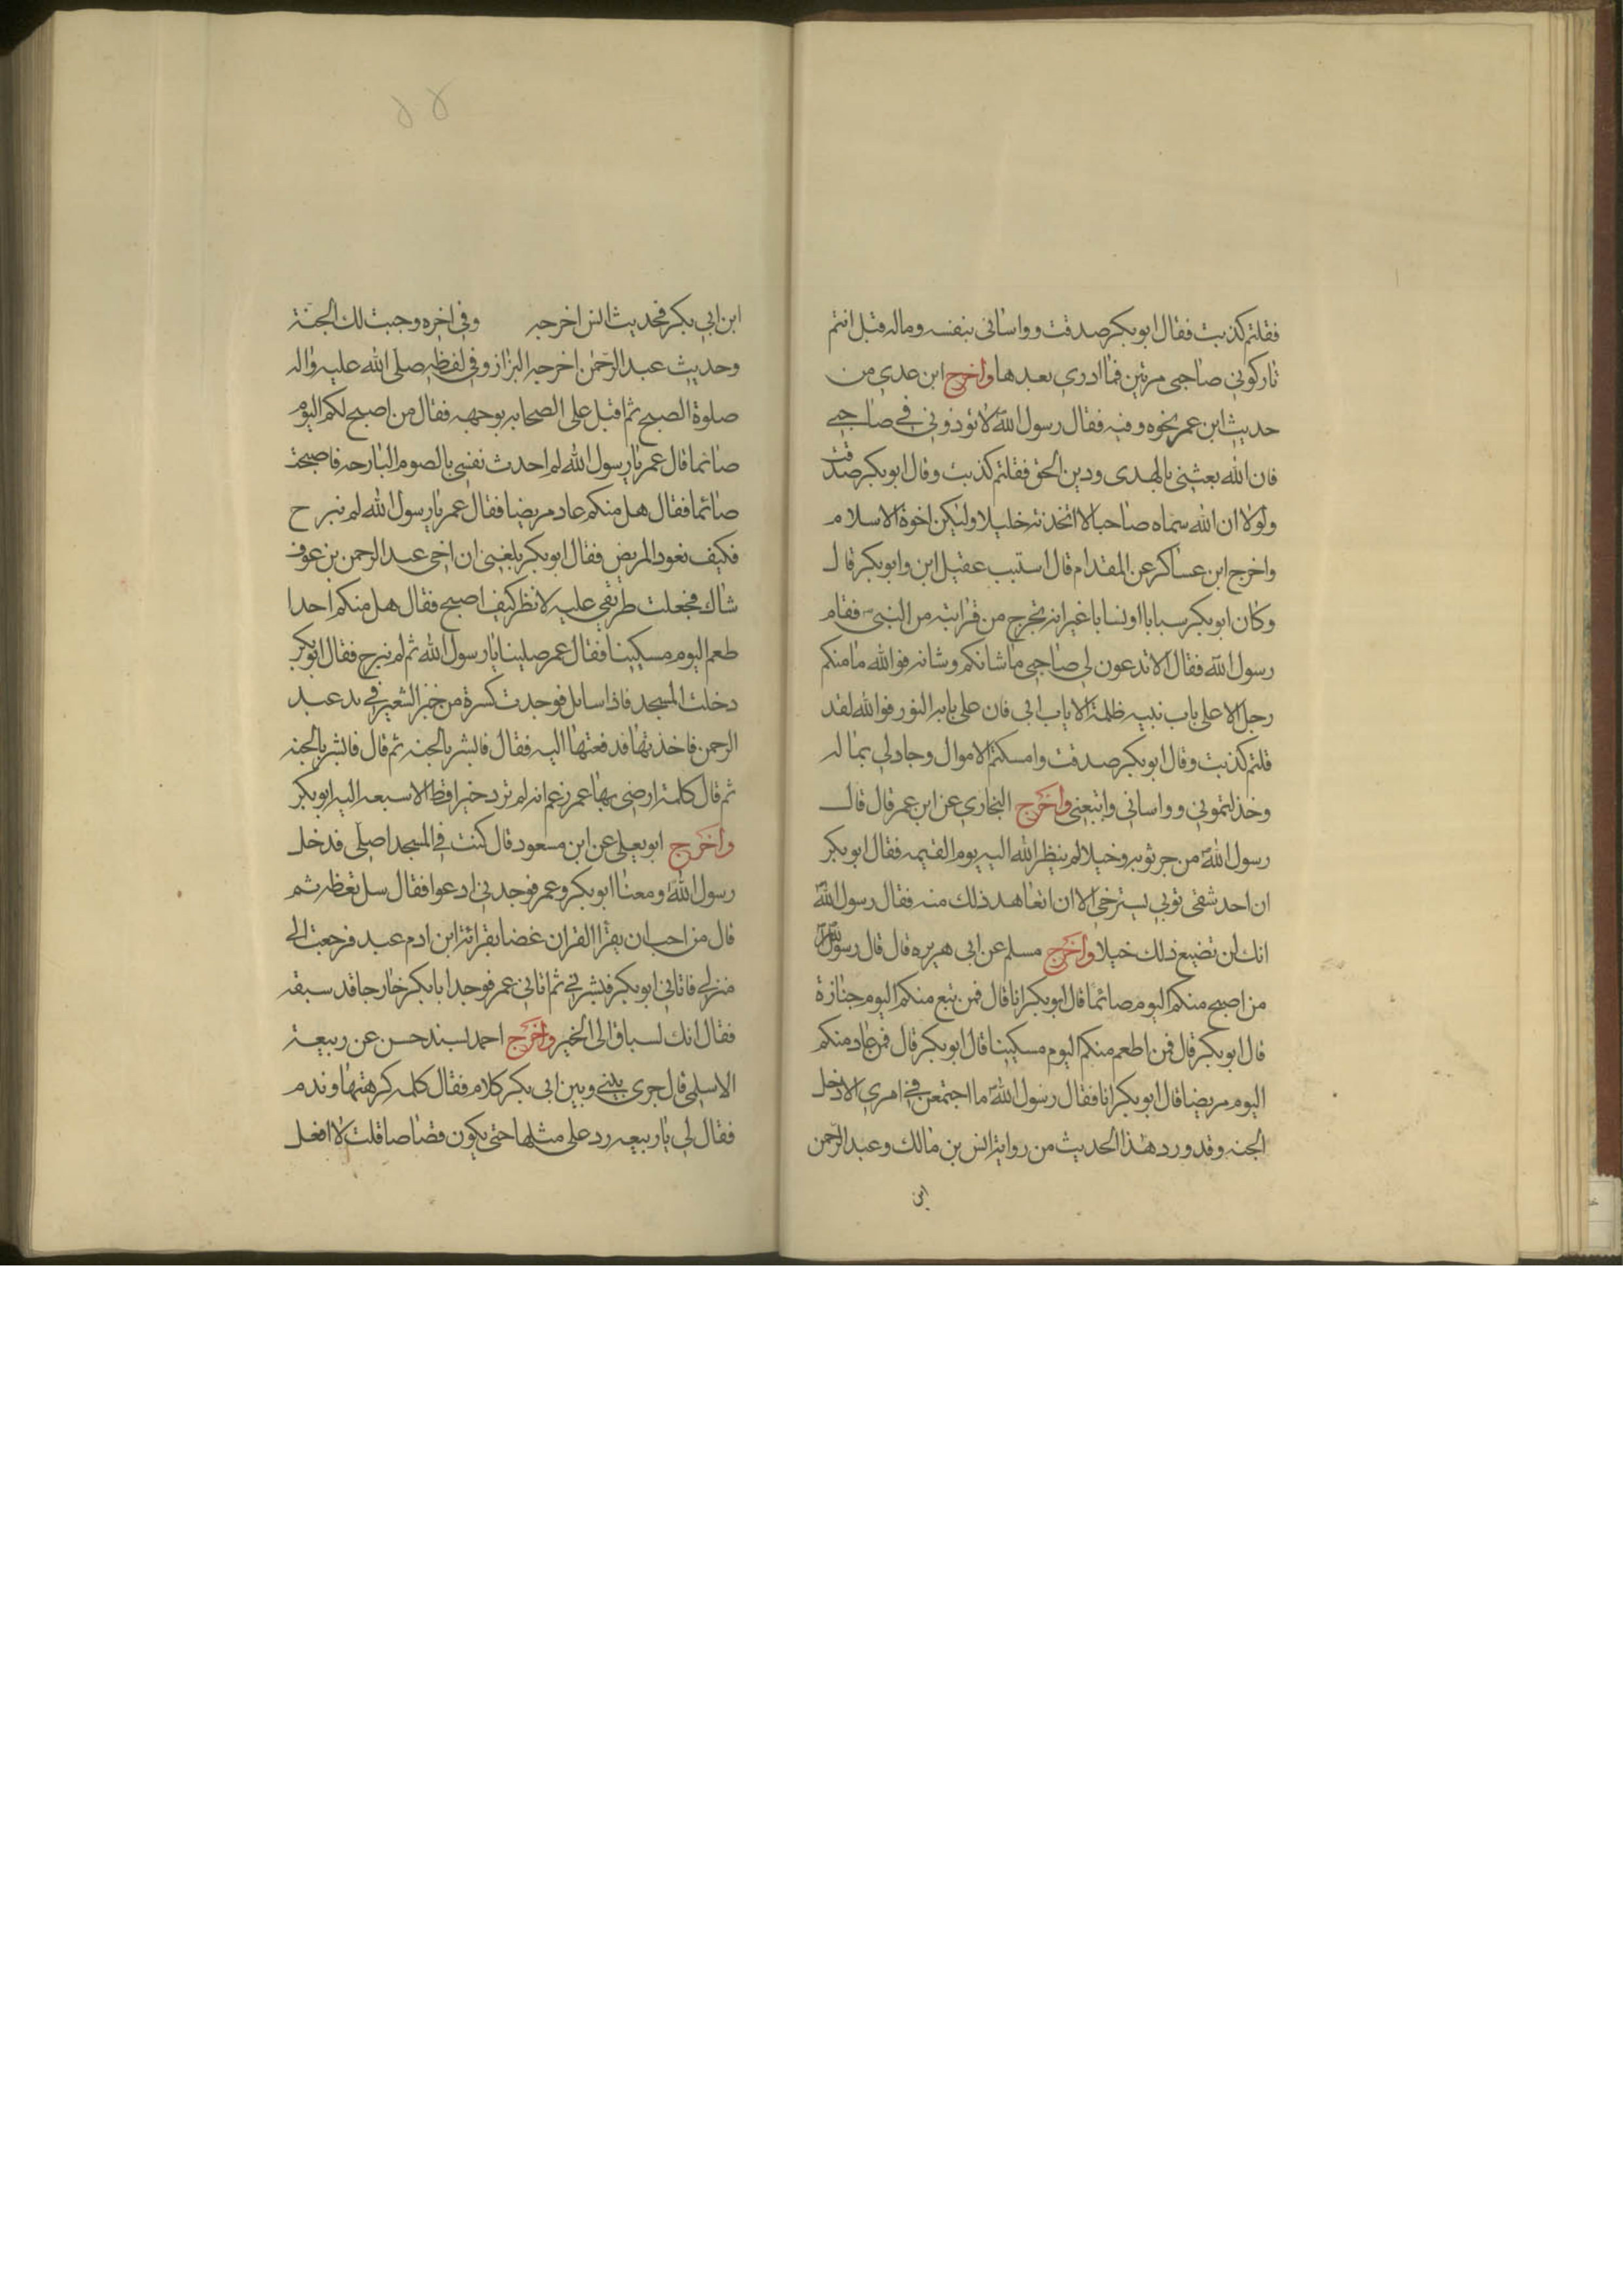 فقلتم كذبت فقال ابوبكر صدقت وواساني بنفسه وماله فهل انتم
تاركوني صاحبي مرتين فما ادري بعدها واخرج ابن عدي من
حديث ابن عمر نحوه وفيه فقال رسول الله لا تؤذوني في صاحبي
فان الله بعثني بالهدى ودين الحق فقلتم كذبت وقال ابوبكر صدقت
ولولا ان الله سماه صاحبا لاتخذته خليلا ولكن اخوة الاسلام
واخرج ابن عساكر عن المقدام قال استب عقيل ابن وابوبكر قال
وكان ابوبكر سبابا او نسابا غير انه تحرج من قرابته من النبي فقام
رسول الله فقال الا تدعون لي صاحبي ما شانكم وشانه فوالله ما منكم
رجل الا على باب بيته ظلمة الا باب ابي فان على بابه النور فوالله لقد
قلتم كذبت وقال ابوبكر صدقت وامسكتم الاموال وجادلي بماله
وخذلتموني وواساني واتبعني واخرج البخاري عن ابن عمر قال قال
رسول الله من جر ثوبه خيلا لم ينظر الله اليه يوم القيمه فقال ابوبكر
ان احد شقي ثوبي يسترخي الا ان اتعاهد ذلك منه فقال رسول الله
انك لن تضيع ذلك خيلا واخرج مسلم عن ابي هريره قال قال رسول الله
من اصبح منكم اليوم صائما قال ابوبكر انا قال فمن تبع منكم اليوم جنازة
قال ابوبكر قال فمن اطعم منكم اليوم مسكينا قال ابوبكر قال فمن عاد منكم
اليوم مريضا قال ابوبكر انا فقال رسول الله ما اجتمعن في امري الا دخل
الجنه وقد ورد هذا الحديث من رواية انس بن مالك وعبد الرحمن
ابن
ابن ابي بكر فحديث انس اخرجه وفي اخره وجبت لك الجنة
وحديث عبد الرحمن اخرجه البزاز وفي لفظه صلى الله عليه واله
صلوة الصبح ثم اقبل على الصحابه بوجهه فقال من اصبح لكم اليوم
صائما قال عمر يا رسول الله لم احدث نفسي بالصوم البارحه فاصبحت
صائما فقال هل منكم عاد مريضا فقال عمر يا رسول الله لم نبرح
فكيف نعود المريض فقال ابوبكر بلغني ان اخي عبد الرحمن بن عوف
شاك فجعلت طريقي عليه لانظر كيف اصبح فقال هل منكم احدا
طعم اليوم مسكينا فقال عمر صلينا يا رسول الله ثم لم نبرح فقال ابوبكر
دخلت المسجد فاذا سايل فوجدت كسرة من خبز الشعير في يد عبد
الرحمن فاخذتها فدفعتها اليه فقال فابشر بالجنه ثم قال فابشر بالجنه
ثم قال كلمة ارضى بها عمر زعم انه لم يرد خيرا قط الا سبعه اليه ابوبكر
واخرج ابويعلى عن ابن مسعود قال كنت في المسجد اصلي فدخل
رسول الله ومعنا ابوبكر وعمر فوجدني ادعوا فقال سل تعطه ثم
قال من احب ان يقرا القران غضا بقرائة ابن ادم عبد فرجعت الى
منزلي فاتاني ابوبكر فبشرني ثم اتاني عمر فوجد ابابكر خارجا قد سبقه
فقال انك لسباق الى الخير واخرج احمد بسند حسن عن ربيعة
الاسلمي قال جرى بيني وبين ابي بكر كلام فقال كلمه كرهتها وندم
فقال لي يا ربيعه رد على مثلها حتى يكون قصاصا قلت لا افعل